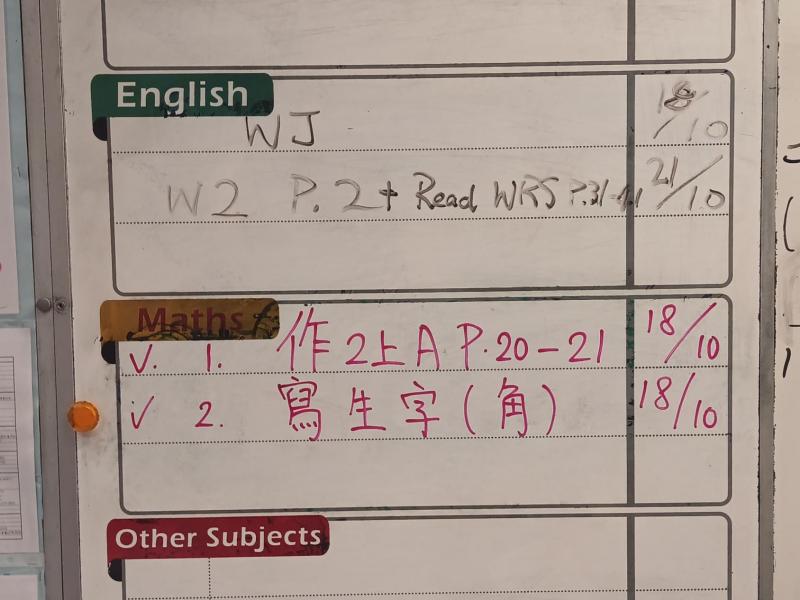 English
WJ 18/10
W2 P.2+ Read WKS P.31-41 21/10
Maths
✓. 1. 作2上A P.20-21 18/10
✓ 2. 寫生字(角) 18/10
Other Subjects